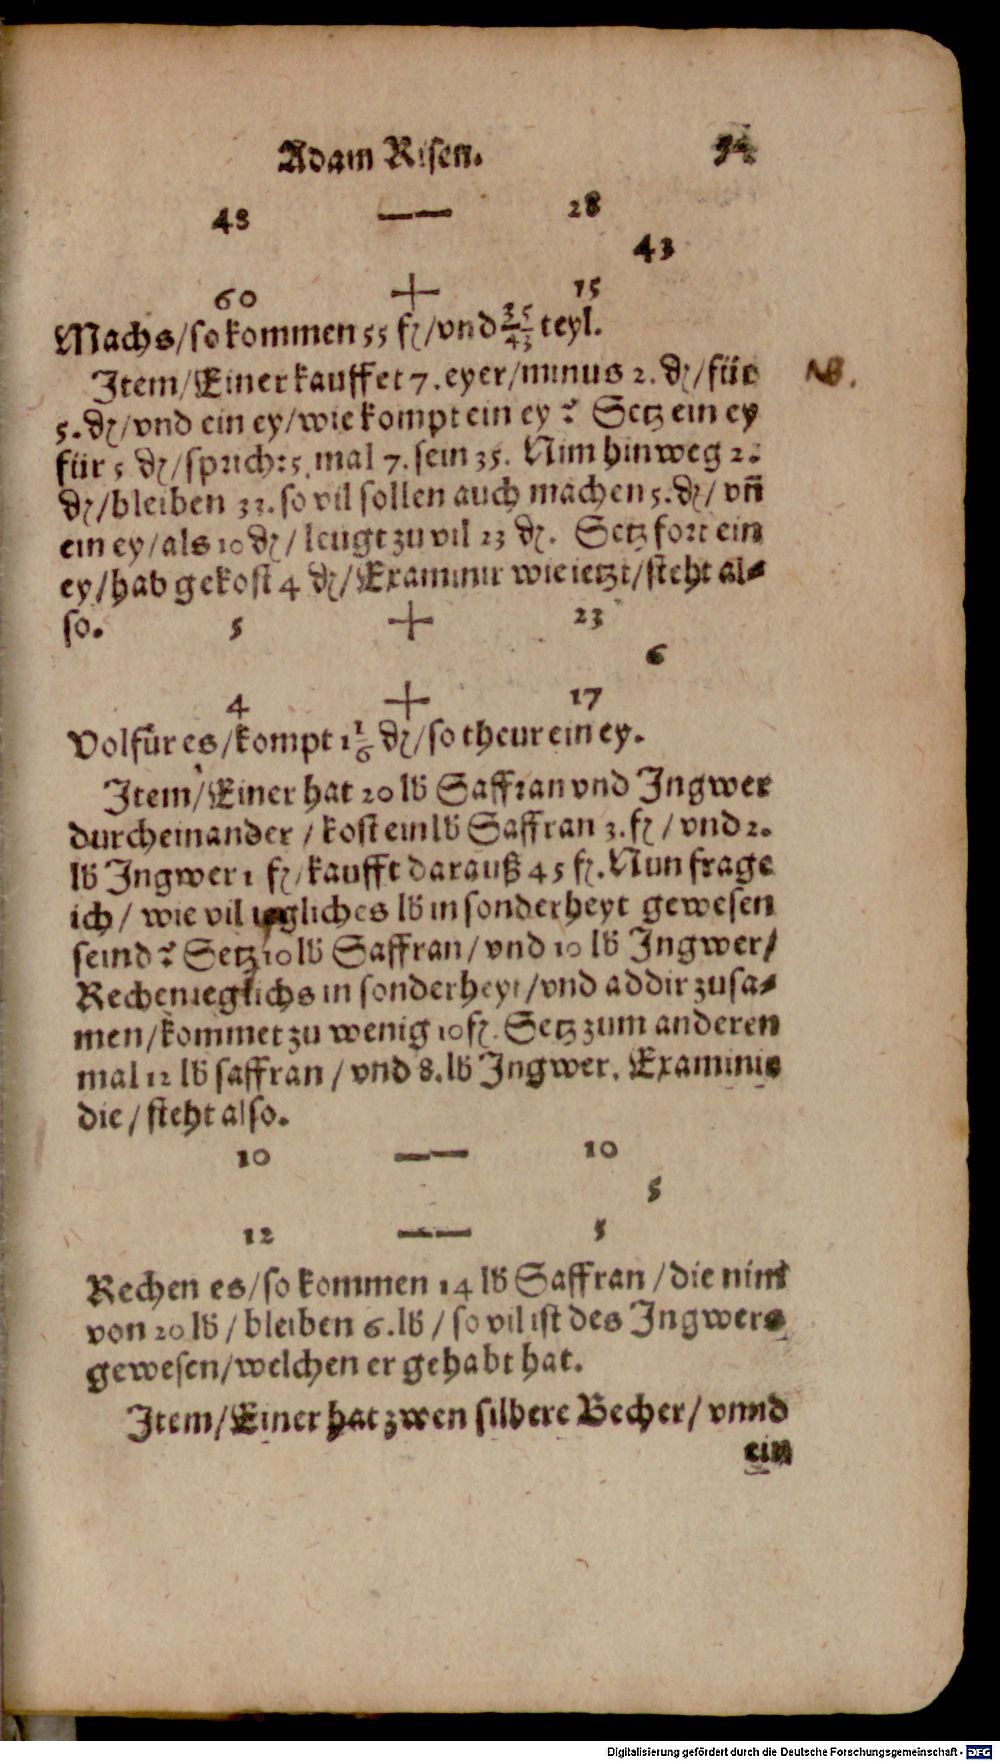 Adam Risen.
48 —— 28
43
60 + 15
Machs/so kommen 55 fl/vnd 35/43 teyl.
Item/Einer kauffet 7. eyer/minus 2. ₰/für
NB.
5. ₰/vnd ein ey/wie kompt ein ey? Setz ein ey
für 5 ₰/sprich: 5 mal 7. sein 35. Nim hinweg 2.
₰/bleiben 33. so vil sollen auch machen 5. ₰/ vñ
ein ey/als 10 ₰/ leugt zu vil 23 ₰. Setz fort ein
ey/hab gekost 4 ₰/Examinir wie ietzt/steht al⸗
so. 5 + 23
6
4 + 17
Volfür es/kompt 1 1/6 ₰/so theur ein ey.
Item/Einer hat 20 lb Saffran vnd Ingwer
durcheinander / kost ein lb Saffran 3. fl / vnd 2.
lb Ingwer 1 fl/kaufft darauß 45 fl. Nun frage
ich/ wie vil iegliches lb in sonderheyt gewesen
seind? Setz 10 lb Saffran/ vnd 10 lb Ingwer/
Rechen ieglichs in sonderheyt/vnd addir zusa⸗
men/kommet zu wenig 10 fl. Setz zum anderen
mal 12 lb saffran / vnd 8. lb Ingwer. Examinir
die/ steht also.
10 —— 10
5
12 —— 5
Rechen es/so kommen 14 lb Saffran /die nimt
von 20 lb / bleiben 6. lb / so vil ist des Ingwers
gewesen/welchen er gehabt hat.
Item/Einer hat zwen silbere Becher/ vnnd
ein
Digitalisierung gefördert durch die Deutsche Forschungsgemeinschaft - DFG